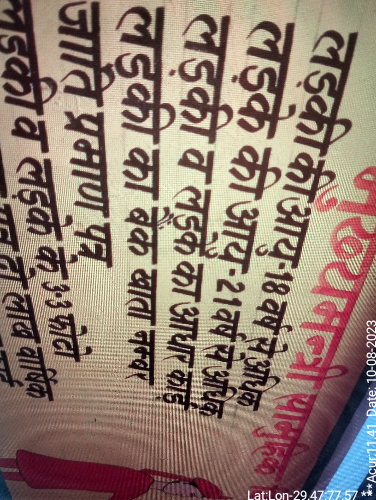 मुख्यमन्त्री सामुहिक
लड़की की आयु 18 वर्ष से अधिक
लड़के की आयु-21 वर्ष से अधिक
लड़की व लड़के का आधार कार्ड
लड़की का बैंक खाता नम्बर
जाति प्रमाण पत्र
लड़की व लड़के के 3-3 फोटो
दो लाख वार्षिक
Lat:Lon-29.47:77.57
**Acur:11.41 Date: 10-08-2023